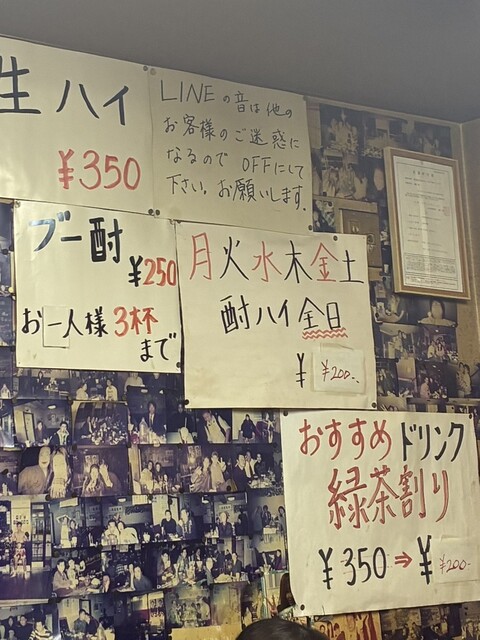 生ハイ
¥350
LINEの音は他の
お客様のご迷惑に
なるので OFFにして
下さい。お願いします。
ブー酎
¥250
お一人様 3杯
まで
月火水木金土
酎ハイ全日
¥ ¥200-
おすすめドリンク
緑茶割り
¥350⇒¥ ¥200-